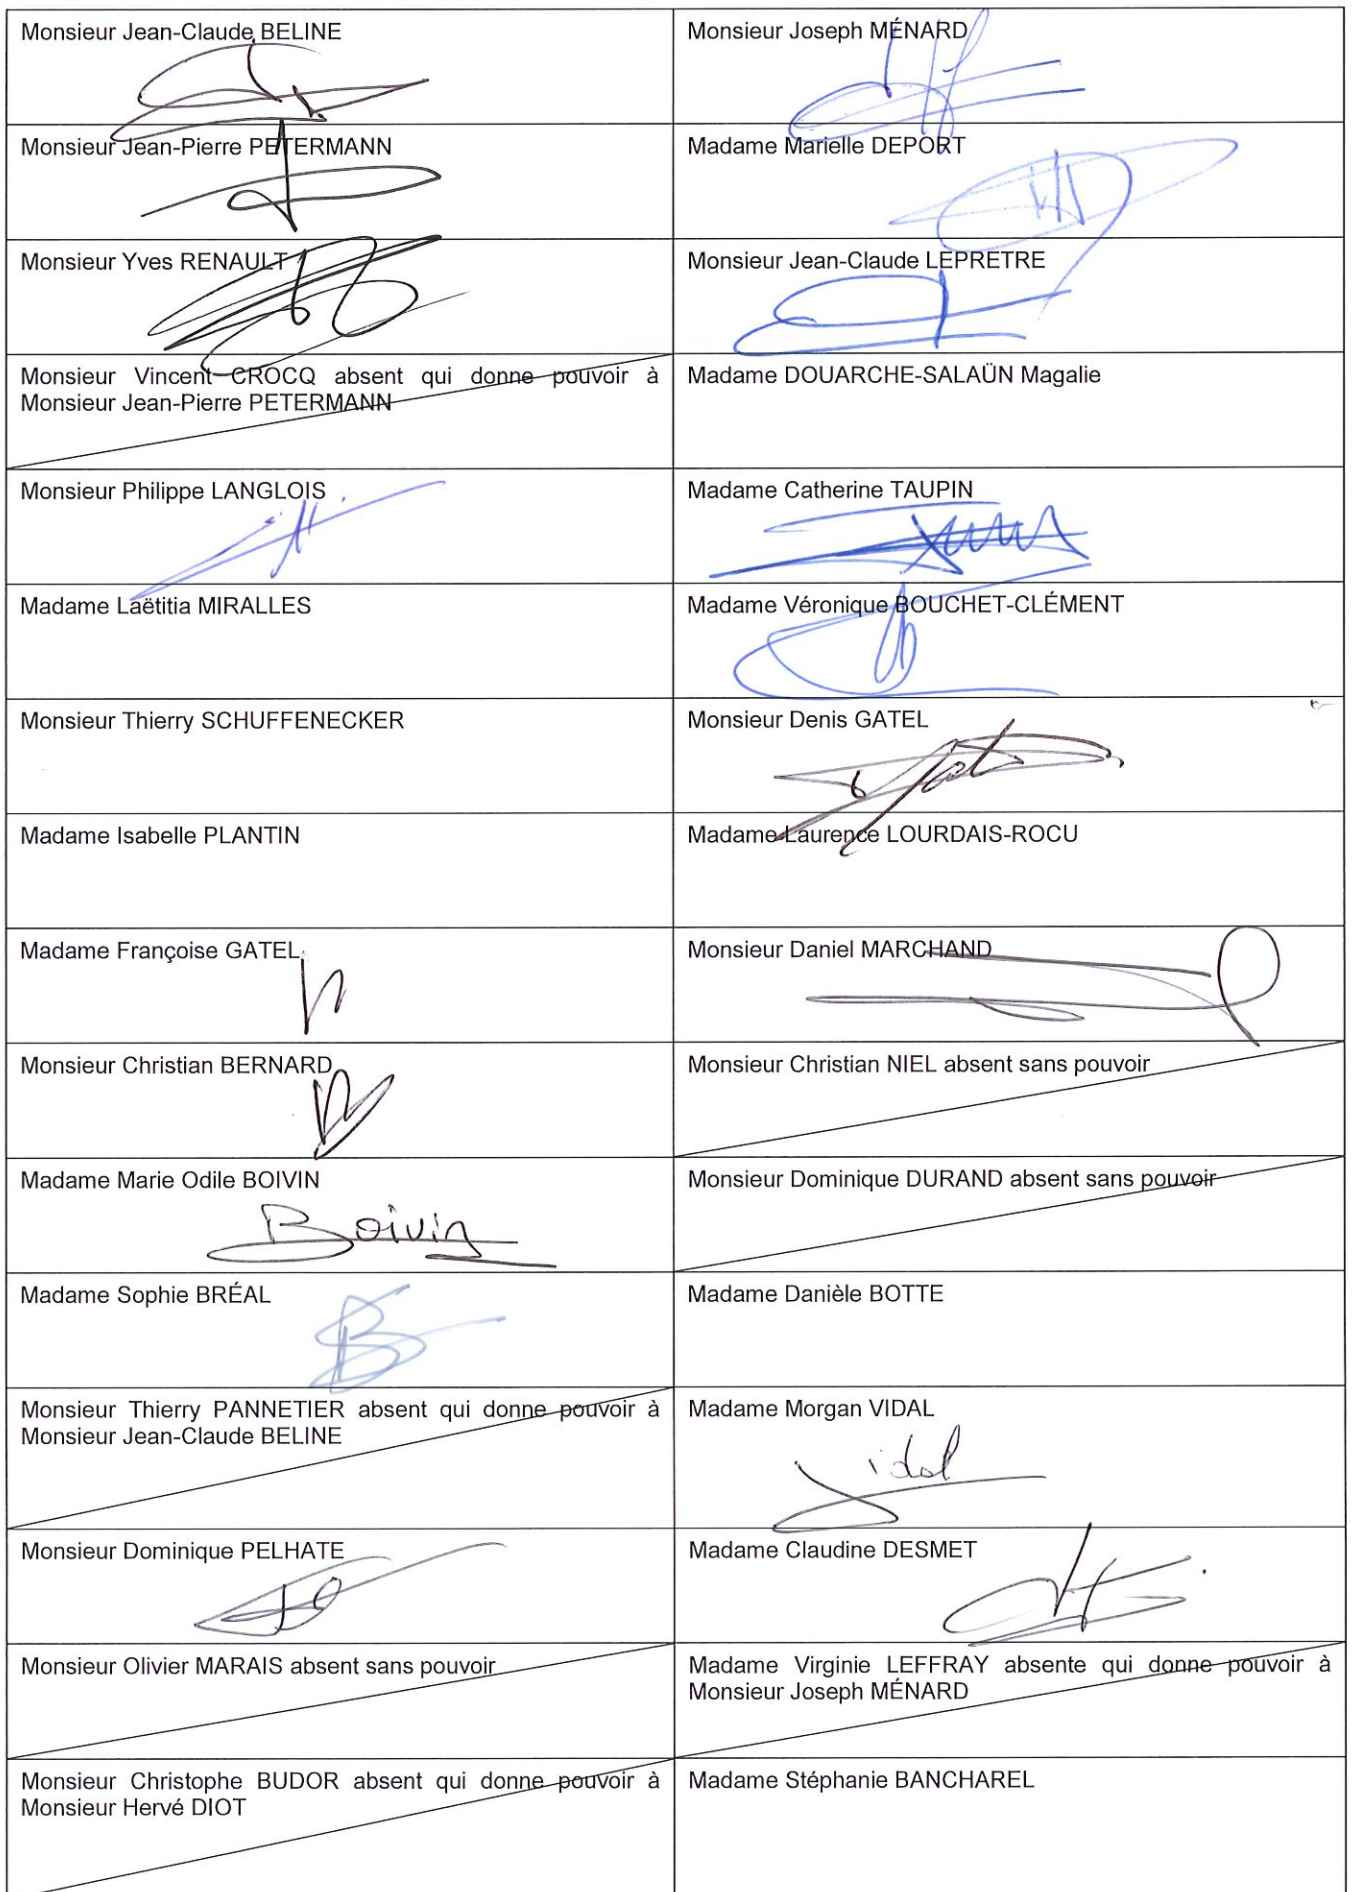 Monsieur Jean-Claude BELINE
Monsieur Joseph MÉNARD
Monsieur Jean-Pierre PETERMANN
Madame Marielle DEPORT
Monsieur Yves RENAULT
Monsieur Jean-Claude LEPRETRE
Monsieur Vincent CROCQ absent qui donne pouvoir à
Monsieur Jean-Pierre PETERMANN
Madame DOUARCHE-SALAÜN Magalie
Monsieur Philippe LANGLOIS
Madame Catherine TAUPIN
Madame Laëtitia MIRALLES
Madame Véronique BOUCHET-CLÉMENT
Monsieur Thierry SCHUFFENECKER
Monsieur Denis GATEL
Madame Isabelle PLANTIN
Madame Laurence LOURDAIS-ROCU
Madame Françoise GATEL
Monsieur Daniel MARCHAND
Monsieur Christian BERNARD
Monsieur Christian NIEL absent sans pouvoir
Madame Marie Odile BOIVIN
Boivin
Monsieur Dominique DURAND absent sans pouvoir
Madame Sophie BRÉAL
Madame Danièle BOTTE
Monsieur Thierry PANNETIER absent qui donne pouvoir à
Monsieur Jean-Claude BELINE
Madame Morgan VIDAL
Vidal
Monsieur Dominique PELHATE
Madame Claudine DESMET
Monsieur Olivier MARAIS absent sans pouvoir
Madame Virginie LEFFRAY absente qui donne pouvoir à
Monsieur Joseph MÉNARD
Monsieur Christophe BUDOR absent qui donne pouvoir à
Monsieur Hervé DIOT
Madame Stéphanie BANCHAREL